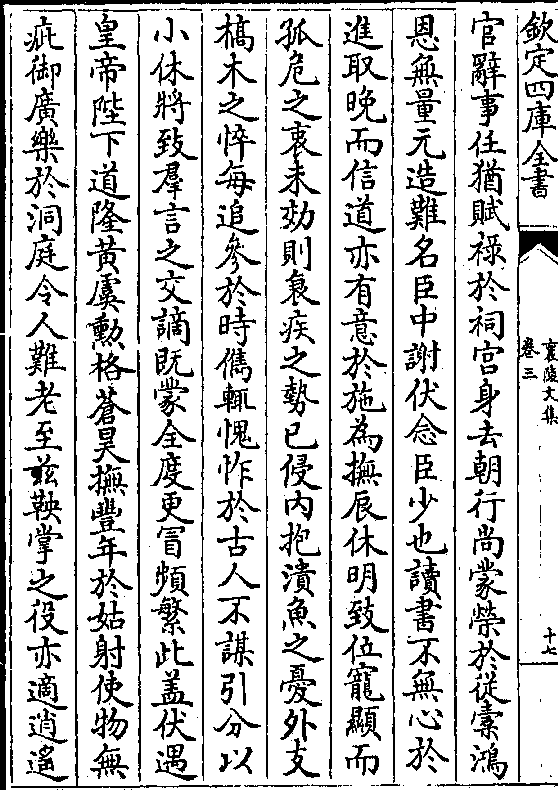 欽定四庫全書
襄陵文集
卷三
十七
官辭事任猶賦祿於祠宮身去朝行尚蒙榮於從橐鴻
恩無量元造難名臣中謝伏念臣少也讀書不無心於
進取晚而信道亦有意於施為撫辰休明致位寵顯而
孤危之衷未効則衰疾之勢已侵内抱潰魚之憂外支
槁木之悴每追參於時儁輒愧怍於古人不謀引分以
小休將致羣言之交謫既蒙全度更冒頻繁此盖伏遇
皇帝陛下道隆黃虞勳格蒼昊撫豐年於姑射使物無
疵御廣樂於洞庭令人難老至兹鞅掌之役亦適逍遙